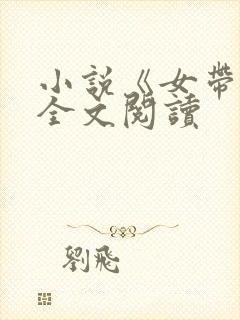 小說《女帶
全文閱讀
劉飛